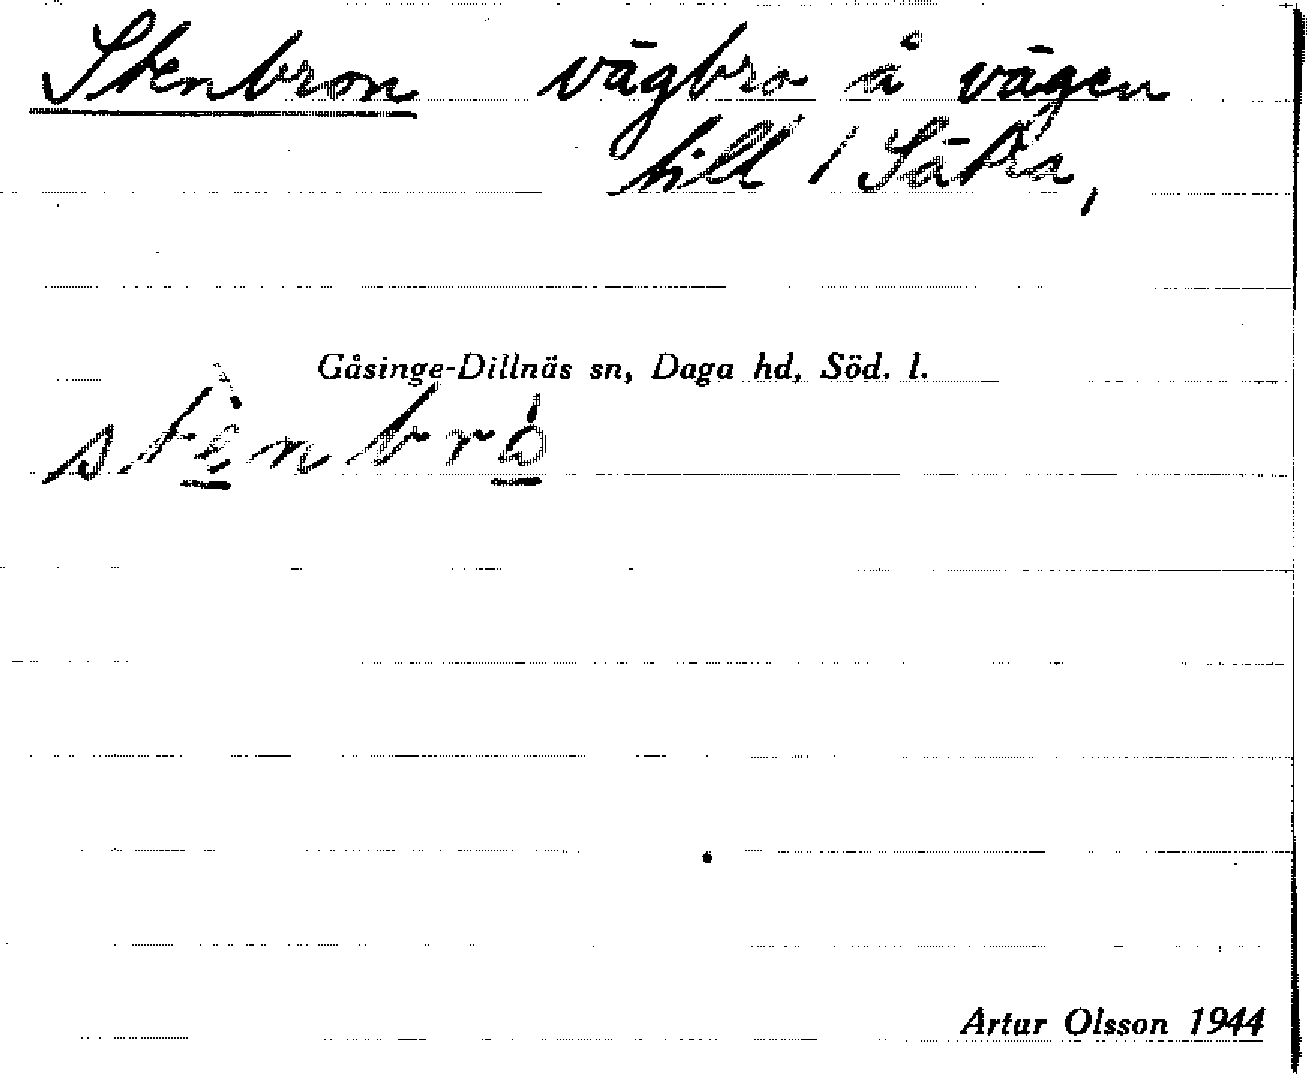 Stenbron vägbro å vägen
till / Säka,
Gåsinge-Dillnäs sn, Daga hd, Söd. l.
stènbró
Artur Olsson 1944